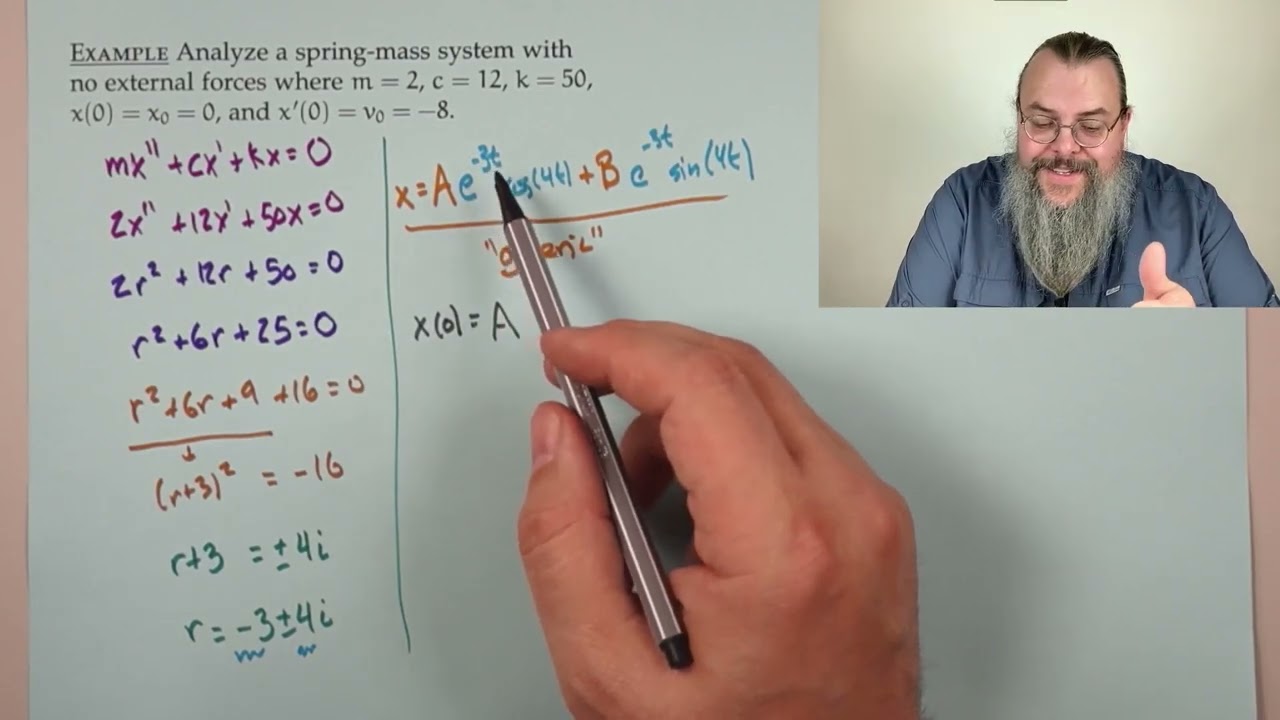 EXAMPLE Analyze a spring-mass system with
no external forces where m = 2, c = 12, k = 50,
x(0) = x₀ = 0, and x′(0) = v₀ = −8.
mx" + cx' + kx = 0
2x" + 12x' + 50x = 0
2r² + 12r + 50 = 0
r² + 6r + 25 = 0
r² + 6r + 9 + 16 = 0
↓
(r+3)² = -16
r+3 = ±4i
r = -3±4i
x = Ae^-3t cos(4t) + Be^-3t sin(4t)
x(0) = A